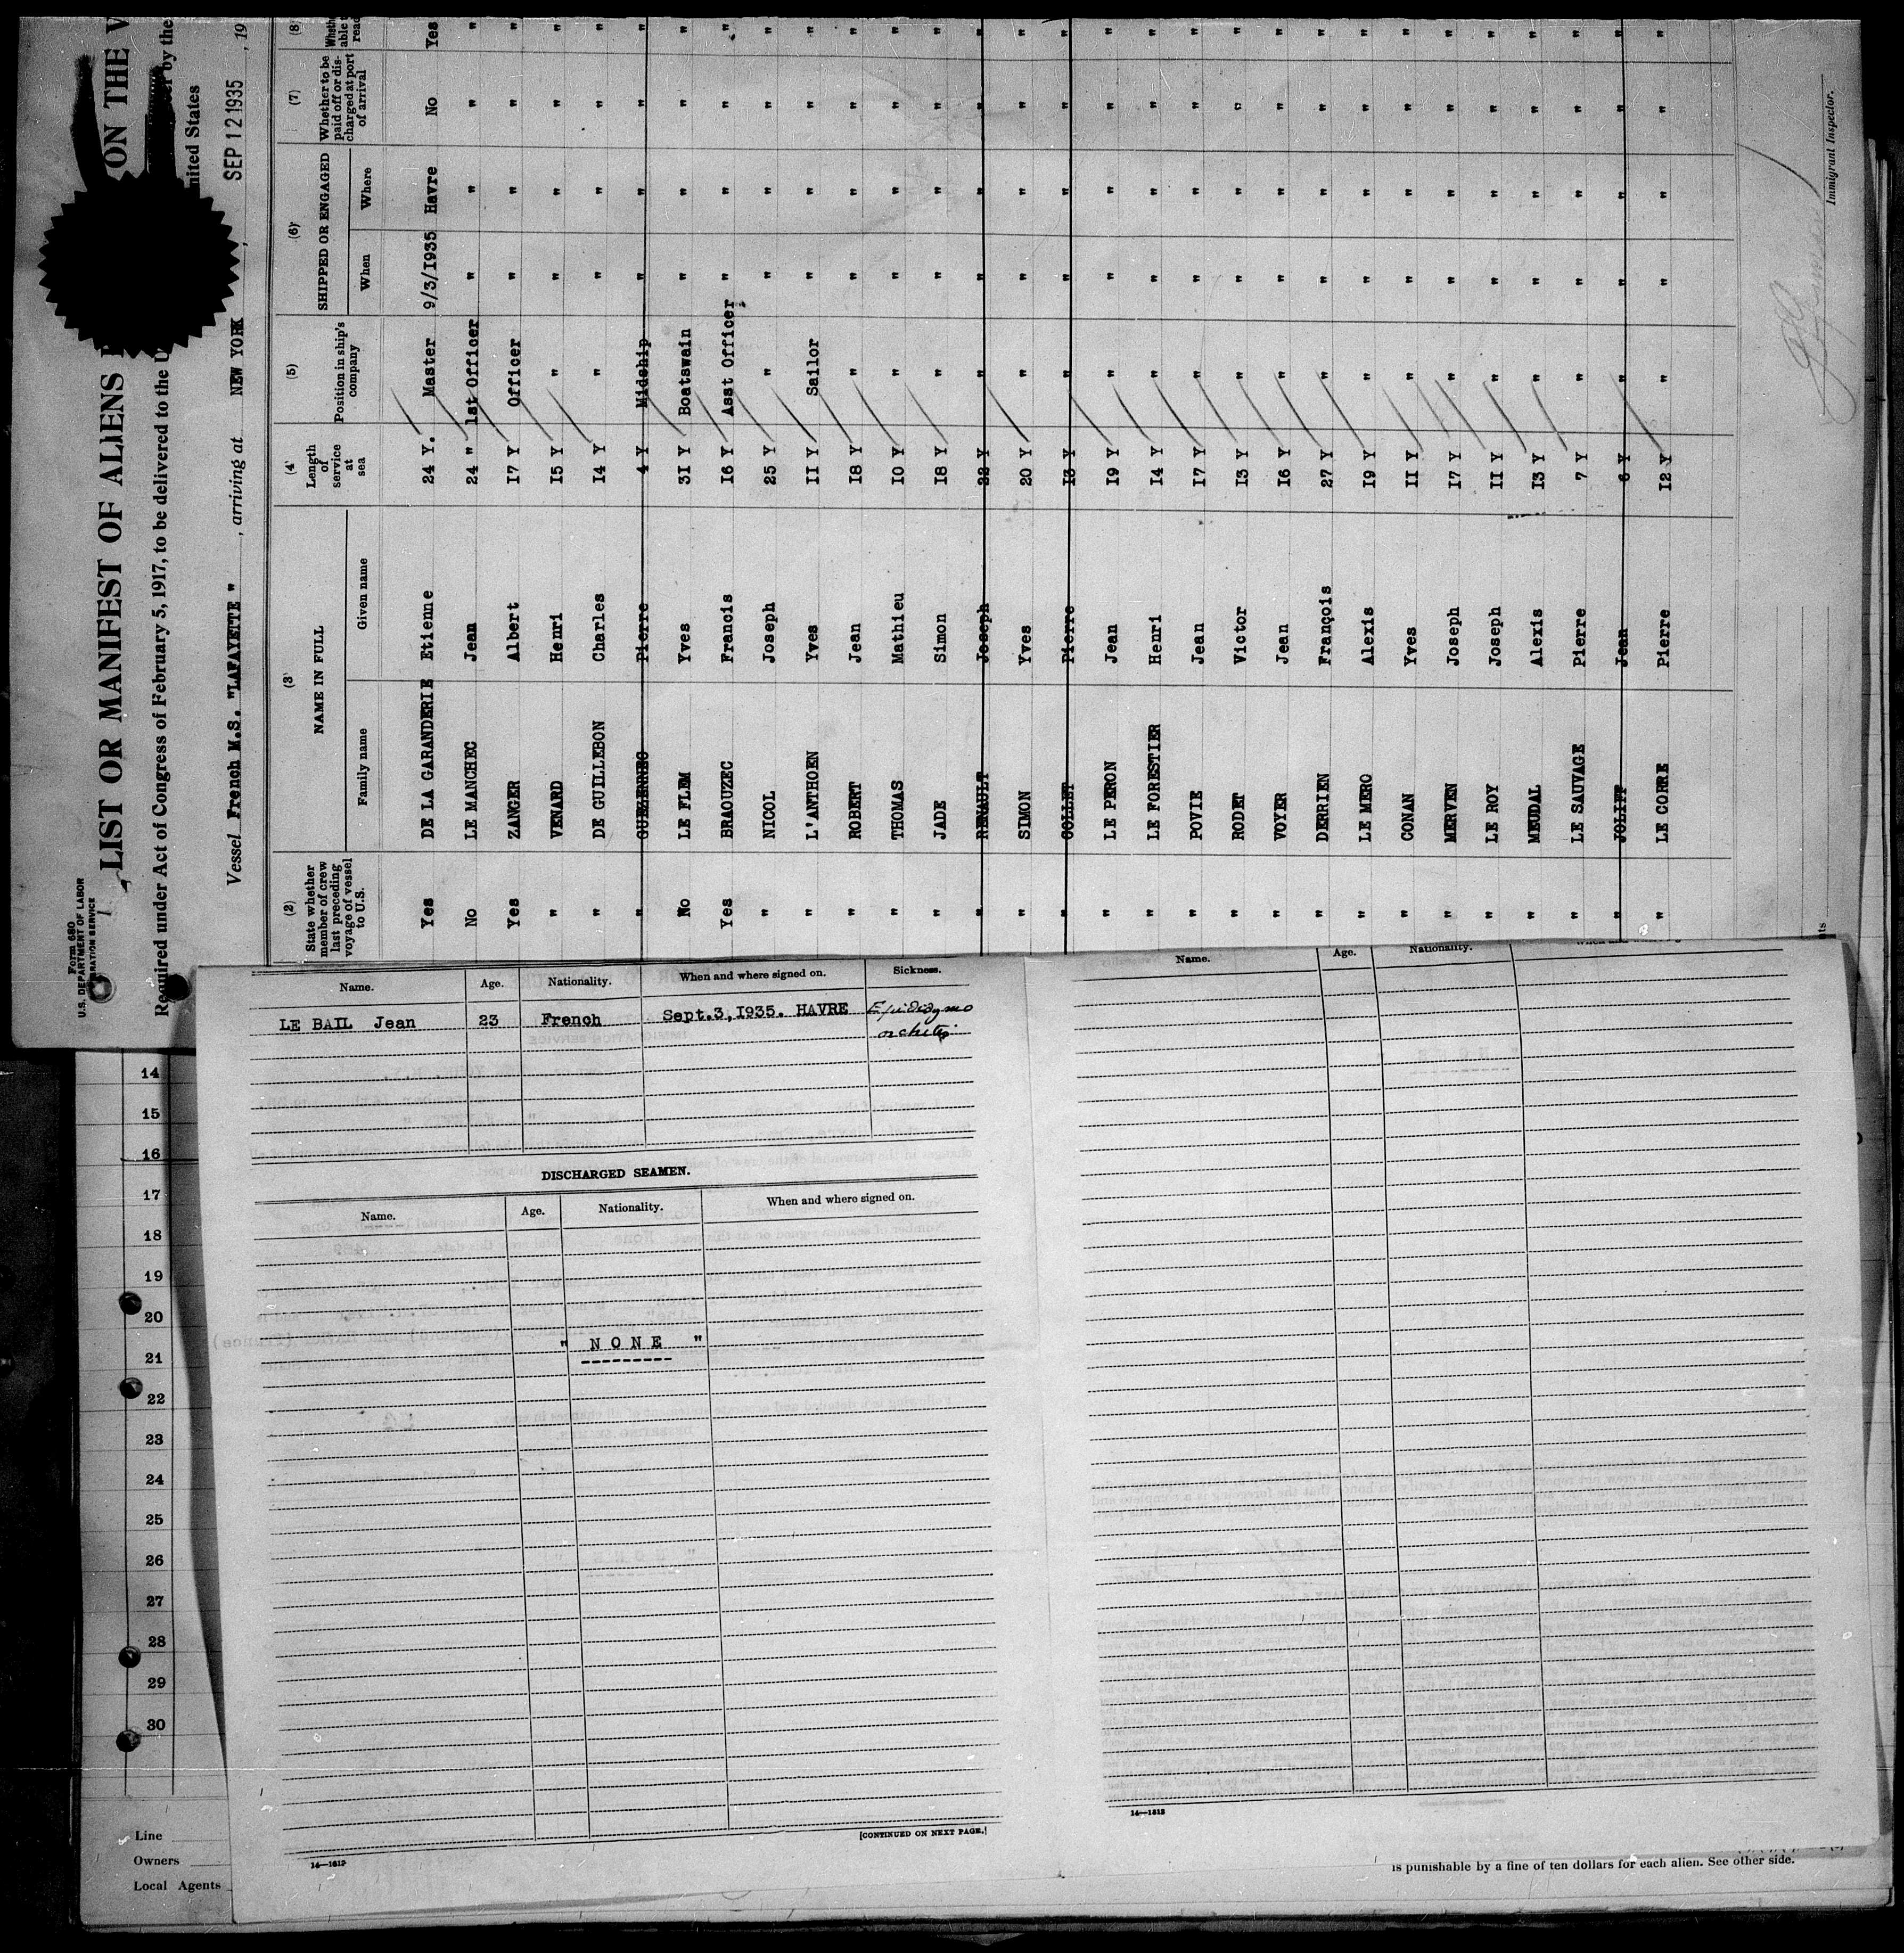 Form 680
U.S. DEPARTMENT OF LABOR
LIST OR MANIFEST OF ALIENS ON THE
Required under Act of Congress of February 5, 1917, to be delivered to the U by the
nited States
Vessel French M.S. "LAFAYETTE" , arriving at NEW YORK , SEP 12 1935 , 19
(2) (3) (4) (5) (6) (7) (8)
State whether member of crew last preceding voyage of vessel to U.S. NAME IN FULL Family name Given name Length of service at sea Position in ship's company SHIPPED OR ENGAGED When Where Whether to be paid off or discharged at port of arrival
Yes DE LA GARANDERIE Etienne 24 Y. Master 9/3/1935 Havre No Yes
No LE MANCHEC Jean 24 " 1st Officer " " " "
Yes ZANGER Albert 17 Y Officer " " " "
" VENARD Henri 15 Y " " " " "
" DE GUILLEBON Charles 14 Y " " " " "
" GUEZERNEC Pierre 4 Y Midship " " " "
No LE FLEM Yves 31 Y Boatswain " " " "
Yes BRAOUZEC Francis 16 Y Asst Officer " " " "
" NICOL Joseph 25 Y " " " " "
" L'ANTHOEN Yves 11 Y Sailor " " " "
" ROBERT Jean 18 Y " " " " "
" THOMAS Mathieu 10 Y " " " " "
" JADE Simon 18 Y " " " " "
" RENAULT Joseph 22 Y " " " " "
" SIMON Yves 20 Y " " " " "
" COLLET Pierre 13 Y " " " " "
" LE PERON Jean 19 Y " " " " "
" LE FORESTIER Henri 14 Y " " " " "
" POVIE Jean 17 Y " " " " "
" RODET Victor 13 Y " " " " "
" VOYER Jean 16 Y " " " " "
" DERRIEN François 27 Y " " " " "
" LE MERO Alexis 19 Y " " " " "
" CONAN Yves 11 Y " " " " "
" MERVEN Joseph 17 Y " " " " "
" LE ROY Joseph 11 Y " " " " "
" MEUDAL Alexis 13 Y " " " " "
" LE SAUVAGE Pierre 7 Y " " " " "
" JOLIFF Jean 6 Y " " " " "
" LE CORRE Pierre 12 Y " " " " "
Immigrant Inspector.
Name. Age. Nationality. When and where signed on. Sickness.
LE BAIL Jean 23 French Sept.3,1935. HAVRE Epididymo
orchitis
DISCHARGED SEAMEN.
Name. Age. Nationality. When and where signed on.
" NONE "
[CONTINUED ON NEXT PAGE.]
14—1813
Name. Age. Nationality.
14—1813
14
15
16
17
18
19
20
21
22
23
24
25
26
27
28
29
30
Line
Owners
Local Agents
is punishable by a fine of ten dollars for each alien. See other side.